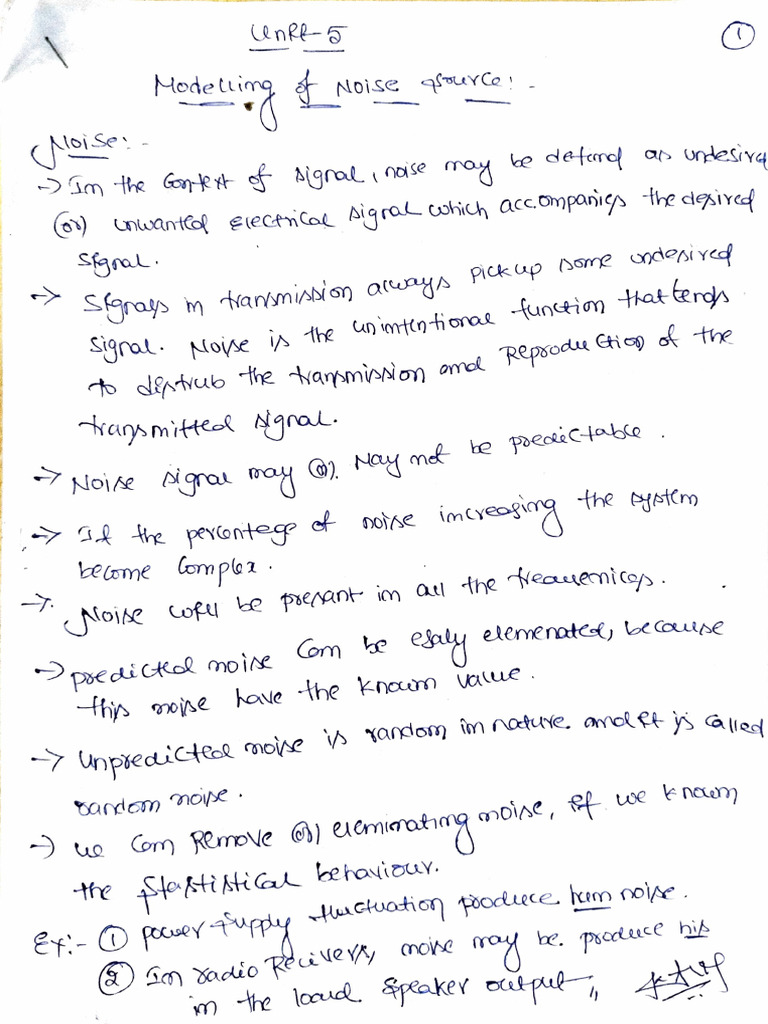 Unit-5
1
Modelling of Noise source:-
Noise:-
-> In the context of signal, noise may be defind as undesired
(or) unwanted electrical signal which accompanies the desired
signal.
-> Signals in transmission always pickup some undesired
signal. Noise is the unintentional function that tends
to distrub the transmission and Reproduction of the
transmitted signal.
-> Noise signal may (or) May not be predictable.
-> If the percentege of noise increasing the system
become complex.
-> Noise will be presant in all the frequencies.
-> predicted noise can be esaly elemenated, because
this noise have the known value.
-> Unpredicted noise is random in nature. and it is called
random noise.
-> we can Remove (or) eleminating noise, if we known
the stastistical behaviour.
Ex:- ① power supply fluctuation produce hum noise.
② In radio Recivers, noise may be produce his
in the loud speaker output,,